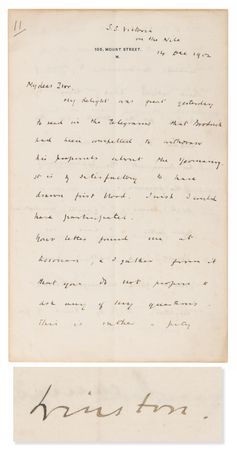 11
S.S. Victoria
on the Nile
105, MOUNT STREET.
W.
14 Dec 1902
My dear Ivor.
My delight was great yesterday
to read in the Telegrams that Brodrick
had been compelled to withdraw
his proposals about the Yeomanry
It is vy satisfactory to have
drawn first blood. I wish I could
have participated.
Your letter found me at
Assouan, & I gather from it
that you do not propose to
ask any of my questions.
This is rather a pity
Winston.